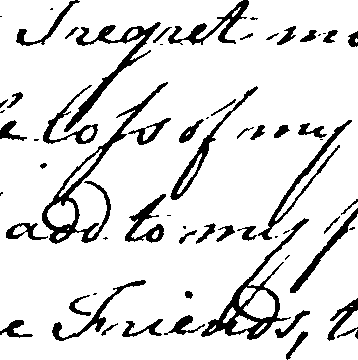 I regret
loss of my
add to my
Friends,